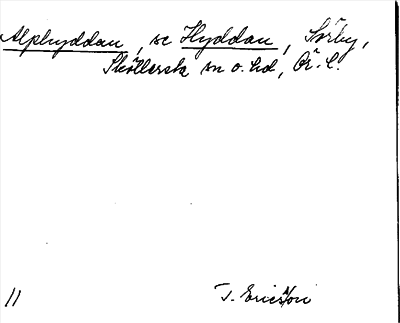 Alphyddan, se Hyddan, Storby,
Sköllersta sn o. hd, Ör. l.
11 T. Ericsson